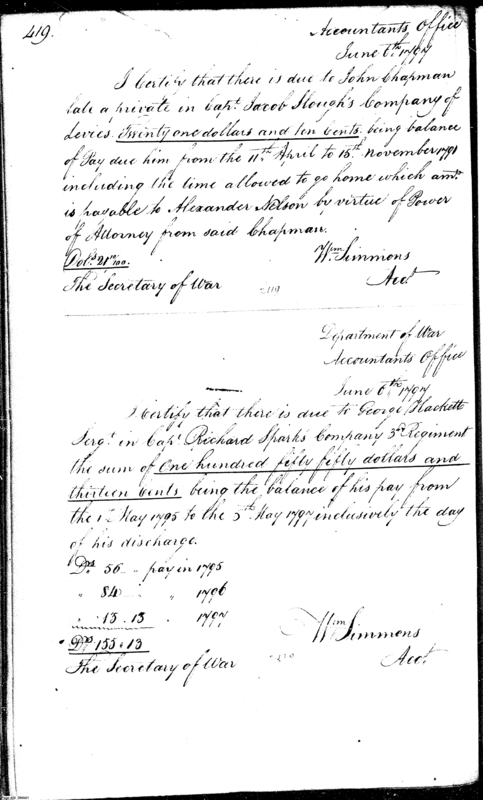 419.
Accountants Office
June 6th 1797
I Certify that there is due to John Chapman
late a private in Capt. Jacob Slough's Company of
Levies. Twenty one dollars and ten Cents. being balance
of Pay due him from the 11th April to 15th November 1791
including the time allowed to go home which amt.
is payable to Alexander Nelson by virtue of Power
of Attorney from said Chapman.
Dols. 21 10/100.
Wm Simmons
The Secretary of War
Acct
Department of War
Accountants Office
June 6th 1797
I Certify that there is due to George Hackett
Sergt. in Capt. Richard Sparks Company 3rd Regiment
the sum of One hundred fifty fifty dollars and
thirteen Cents being the balance of his pay from
the 1st May 1795 to the 5th May 1797 inclusively the day
of his discharge.
Ds. 56 " pay in 1795
" 84 " " 1796
" 15.13 " 1797
Ds 155.13
Wm Simmons
The Secretary of War
Acct.